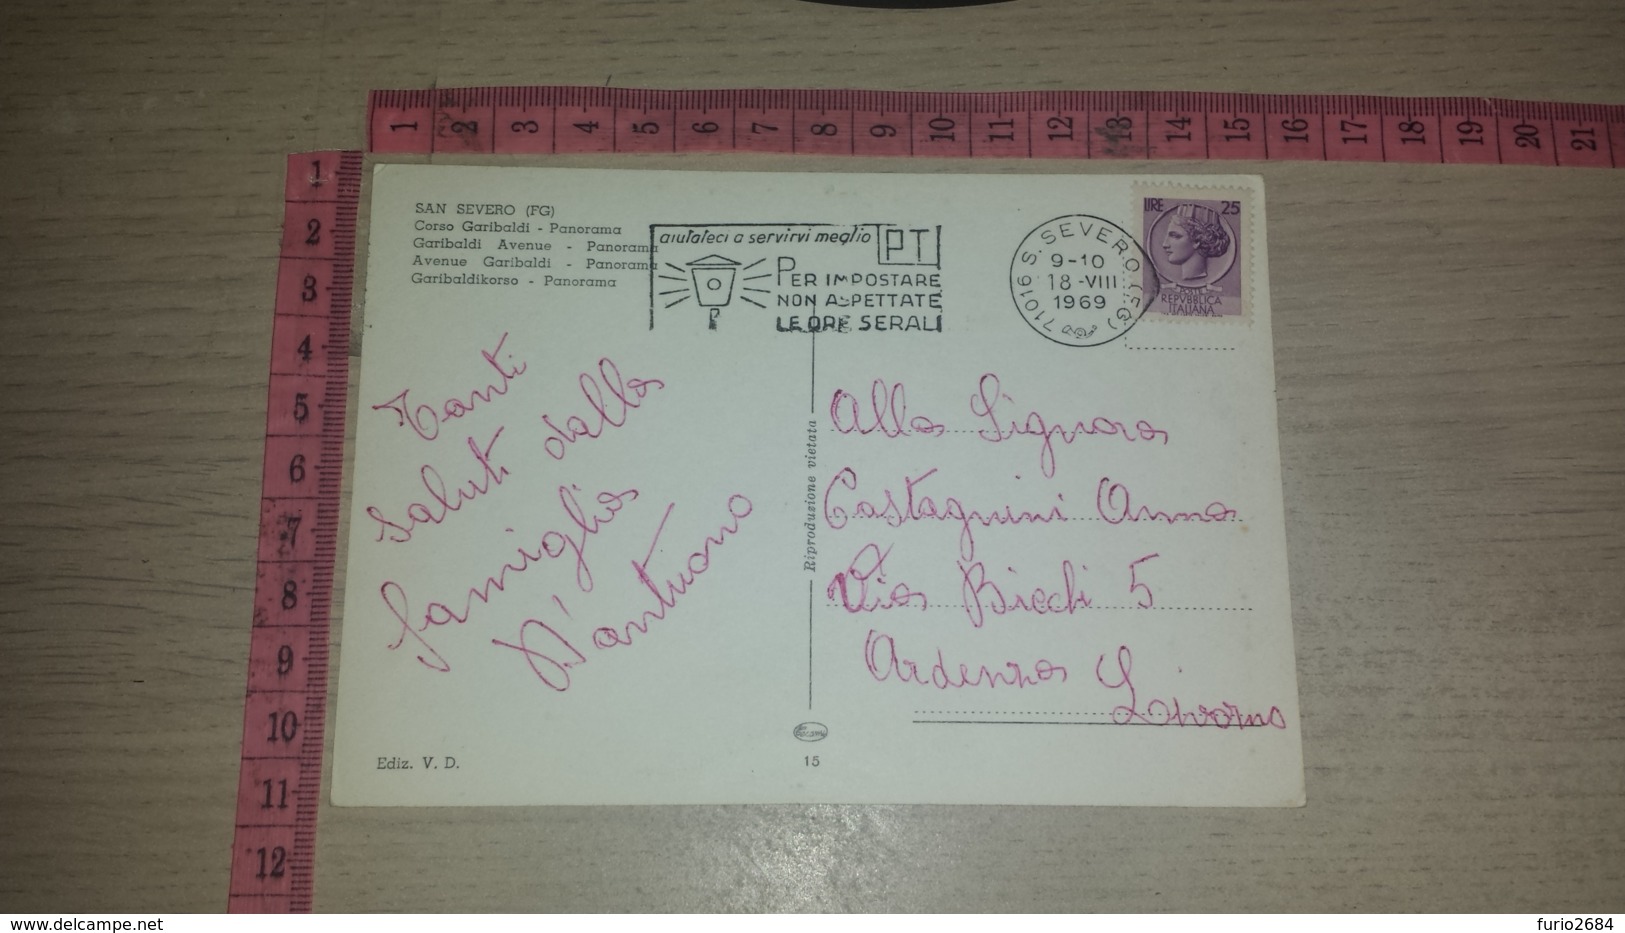 1 2 3 4 5 6 7 8 9 10 11 12 13 14 15 16 17 18 19 20 21
1
2
3
4
5
6
7
8
9
10
11
12
SAN SEVERO (FG)
Corso Garibaldi - Panorama
Garibaldi Avenue - Panorama
Avenue Garibaldi - Panorama
Garibaldikorso - Panorama
aiutateci a servirvi meglio PT
PER IMPOSTARE
NON ASPETTATE
LE ORE SERALI
71016 S. SEVERO (FG)
9-10
18-VIII
1969
LIRE 25
POSTE
REPVBBLICA
ITALIANA
Tanti
saluti dalla
famiglia
D'antuono
Riproduzione vietata
Alla Signora
Castagnini Anna
Via Bicchi 5
Ardenza Livorno
Ediz. V. D.
15
www.delcampe.net
furio2684